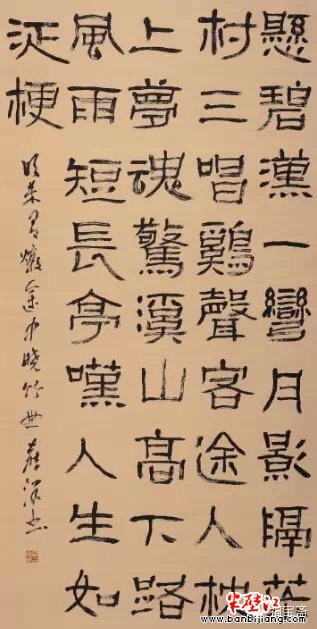 懸碧漢一彎月影隔茅
村三唱鷄聲客途人枕
上夢魂驚溪山高下路
風雨短長亭嘆人生如
泛梗
途中曉行 世
半壁江
www.banbijiang.com